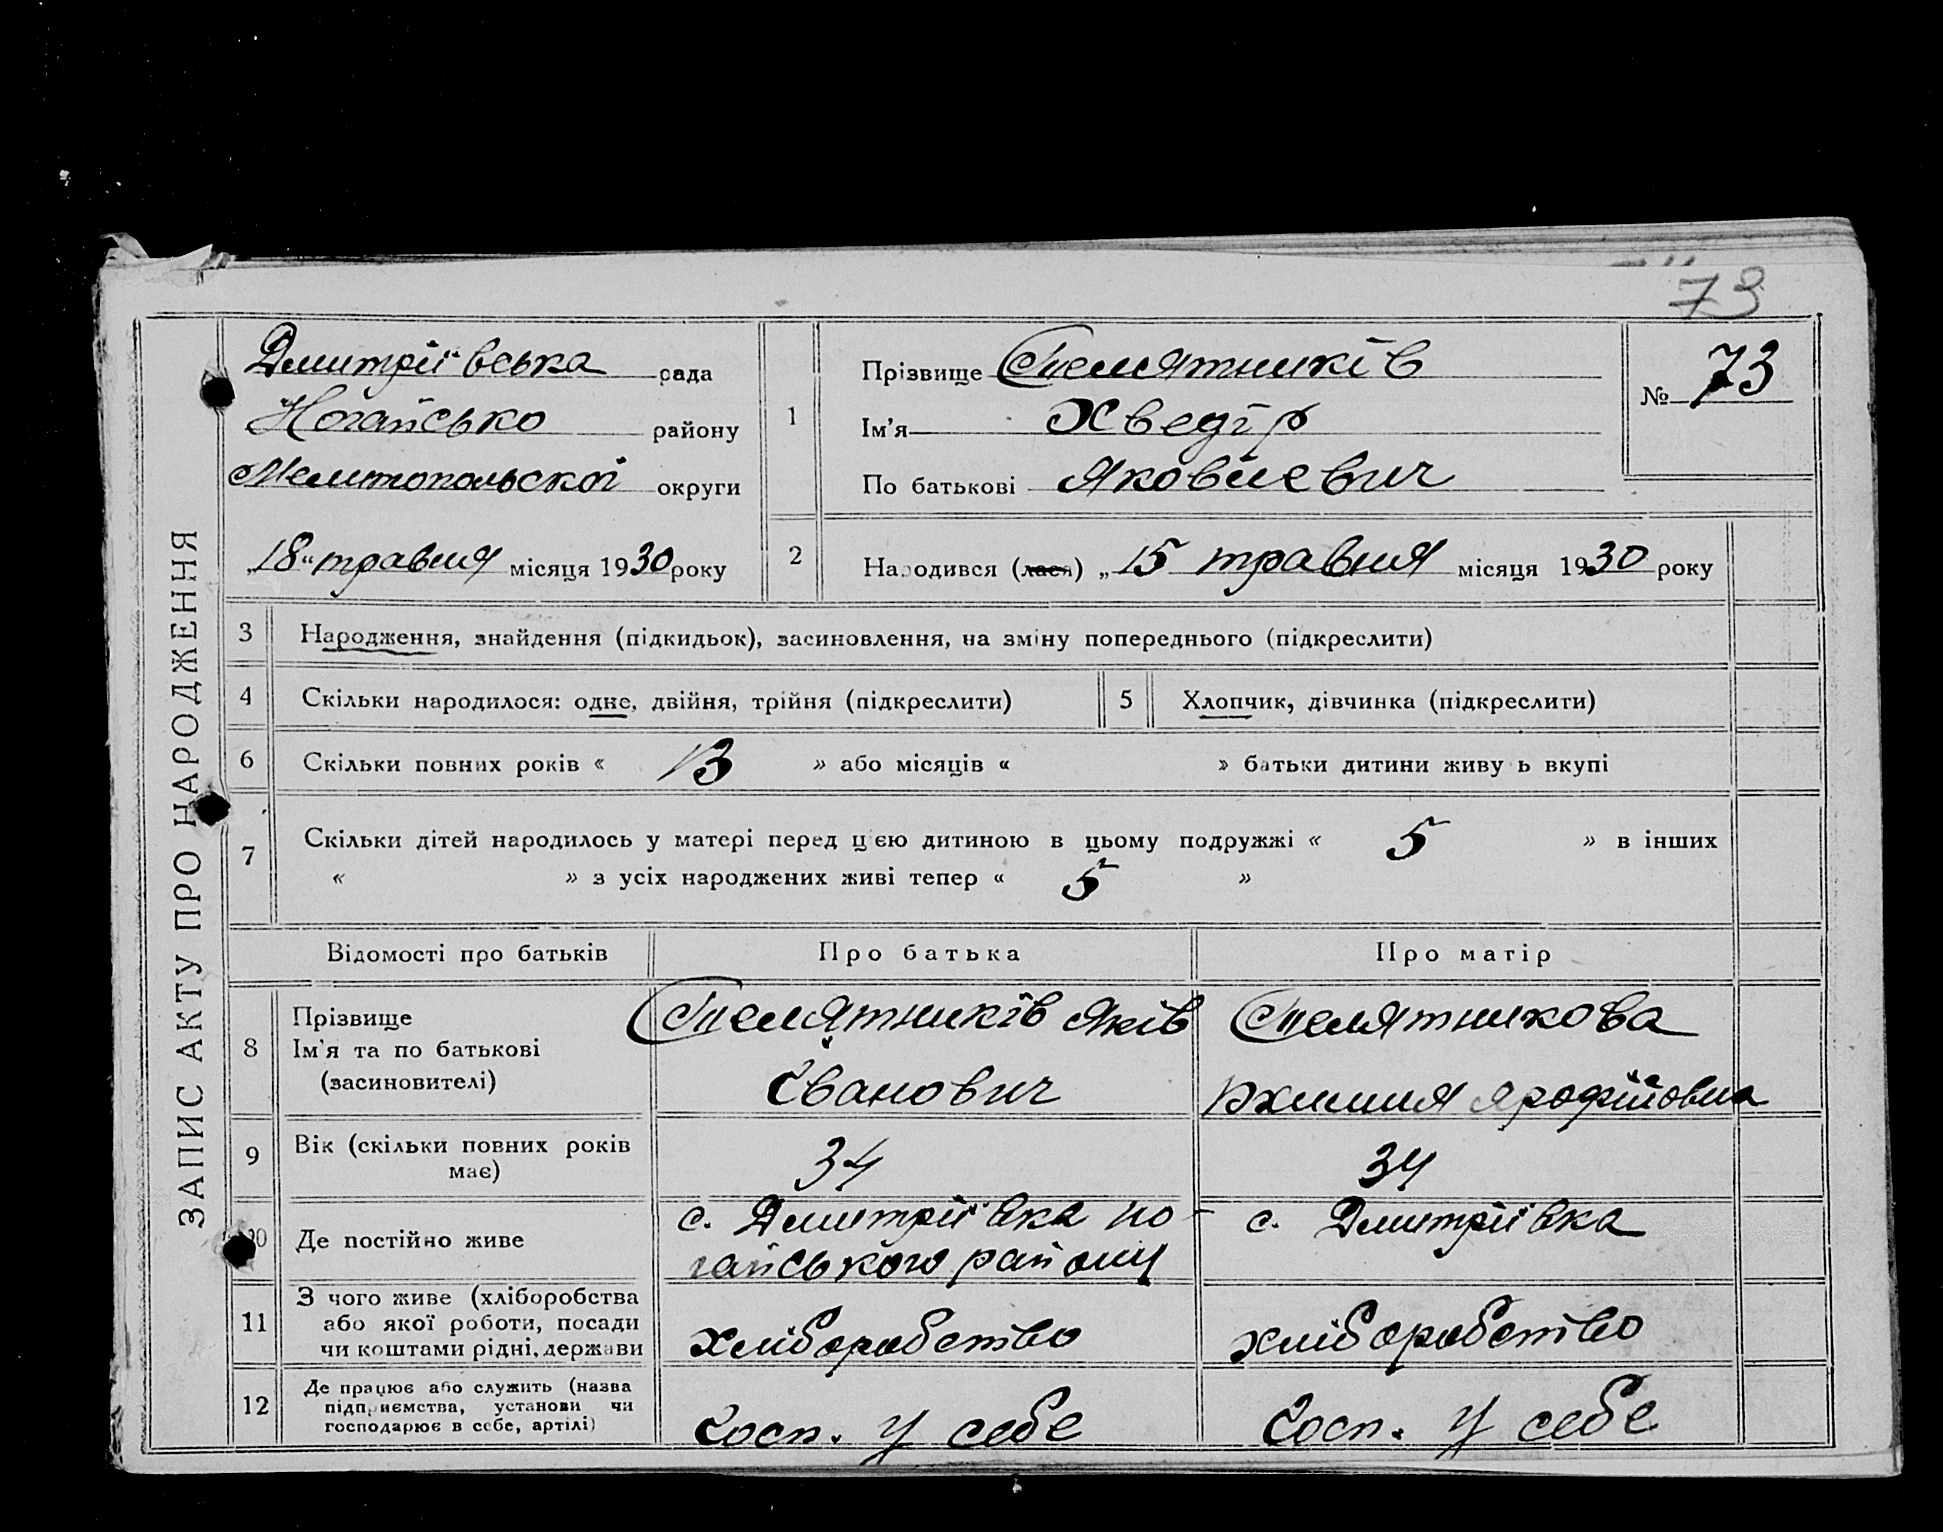 73
ЗАПИС АКТУ ПРО НАРОДЖЕННЯ
Дмитріївська рада
Ногайсько району
Мелитопольскої округи
„18“ травня місяця 1930 року
1
Прізвище Телятників
Ім'я Хведір
По батькові Яковлевич
№ 73
2
Народився (лася) „15 травня місяця 1930 року
3 Народження, знайдення (підкидьок), засиновлення, на зміну попереднього (підкреслити)
4 Скільки народилося: одне, двійня, трійня (підкреслити) 5 Хлопчик, дівчинка (підкреслити)
6 Скільки повних років « 13 » або місяців « » батьки дитини живу ь вкупі
7 Скільки дітей народилось у матері перед цією дитиною в цьому подружжі « 5 » в інших
« » з усіх народжених живі тепер « 5 »
Відомості про батьків Про батька Про матір
8 Прізвище
Ім'я та по батькові
(засиновителі)
Телятників Яків
Іванович
Телятникова
9 Вік (скільки повних років
має)
34
34
Де постійно живе
с. Дмитріївка но-
гайського району
с. Дмитріївка
11 З чого живе (хліборобства
або якої роботи, посади
чи коштами рідні, держави
хліборобство
хліборобство
12 Де працює або служить (назва
підприємства, установи чи
господарює в себе, артілі)
Госп. у себе
Госп. у себе